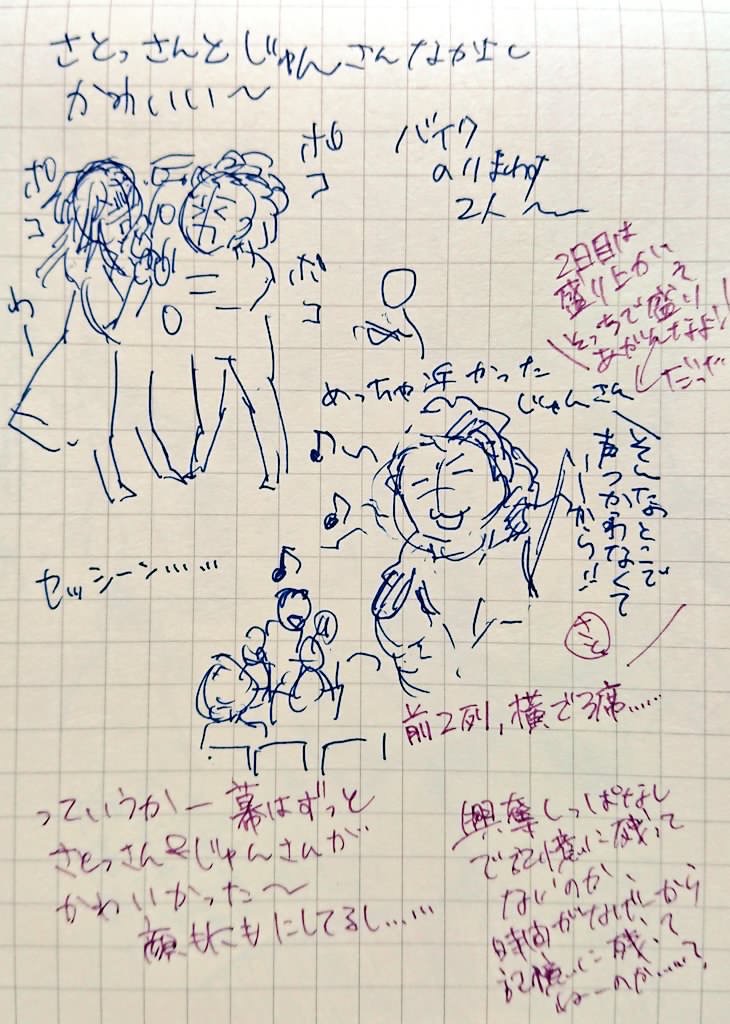 さとっさんとじゅんさんなかよし
かわいい〜
ポコ
ポコ
ポコ
わー
バイク
のりまわす
2人〜
2日目は
盛り上がい
そっちで盛り
あがんなよ!
だった
めっちゃ近かった
じゅんさん
そんなとこで
声つかわなくて
いーから!!
さと
セッシーン……
前2列,横で3席……
っていうか一幕はずっと
さとっさんとじゅんさんが
かわいかった〜
顔もにしてるし……
興奮しっぱなし
で記憶に残って
ないのか、
時間がなげーから
記憶に残って
ねーのか……?